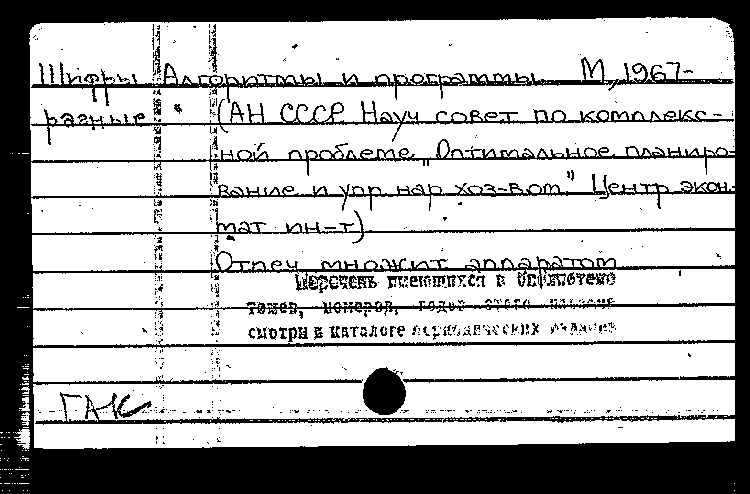 Шифры Алгоритмы и программы М, 1967-
разные (АН СССР. Науч совет по комплекс-
ной проблеме „Оптимальное планиро-
вание и упр нар хоз-вом." Центр экон.
мат ин-т).
Отпеч множит аппаратом
Перечень имеющихся в библиотеке
томов, номеров, годов этого издания
смотри в каталоге периодических изданий
ГАК